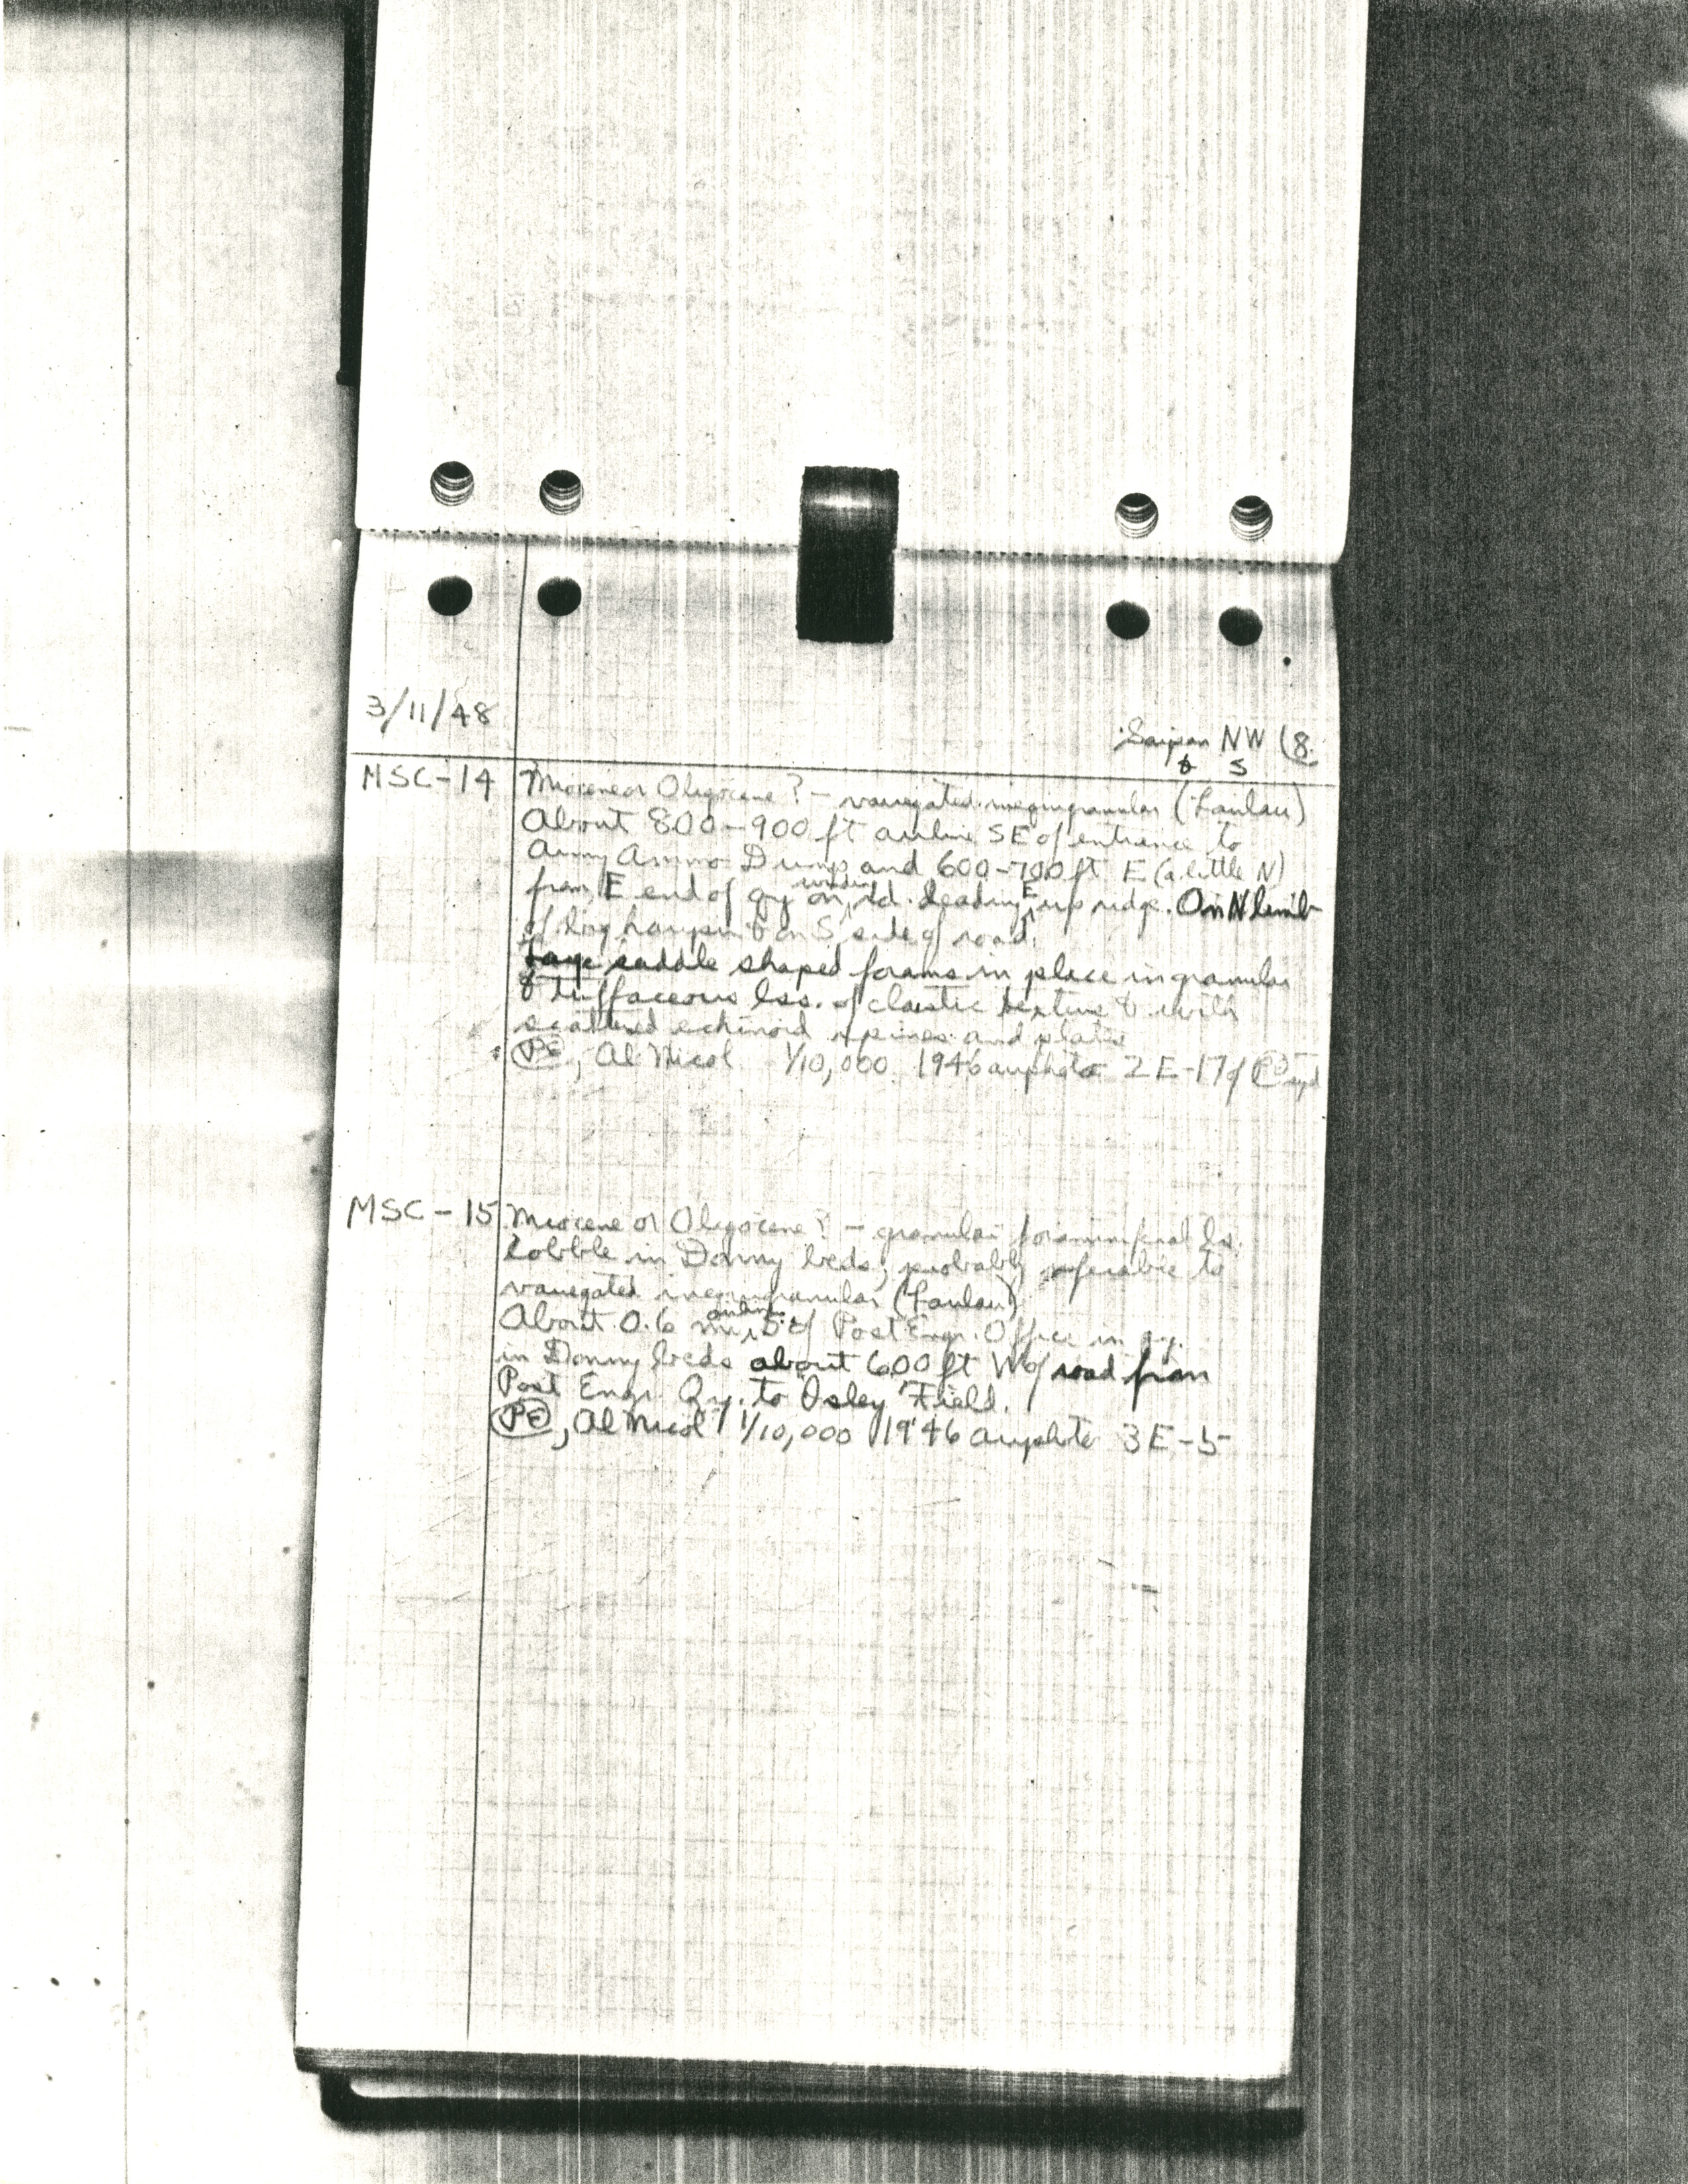 3/11/48
Saipan NW (8.
& S
MSC-14 Miocene or Oligocene? – variegated inequigranular (Laulau)
About 800–900 ft airline SE of entrance to
Army Ammo Dump and 600–700 ft E (a little N)
from E end of qy on winding rd. leading E up ridge. On N limb
of long hairpin & on S side of road.
Large saddle shaped forams in place in granular
& tuffaceous lss. of clastic texture & with
scattered echinoid spines and plates
PE, Al Nicol 1/10,000 1946 airphoto 2E-17 of
MSC-15 Miocene or Oligocene? – granular foraminiferal ls.
cobble in Donny beds; probably referable to
variegated inequigranular (Laulau)
About 0.6 mi airline S of Post Engr. Office in qy.
in Donny beds about 600 ft W of road from
Post Engr. Qy. to Isley Field.
PE, Al Nicol 1/10,000 1946 airphoto 3E-5